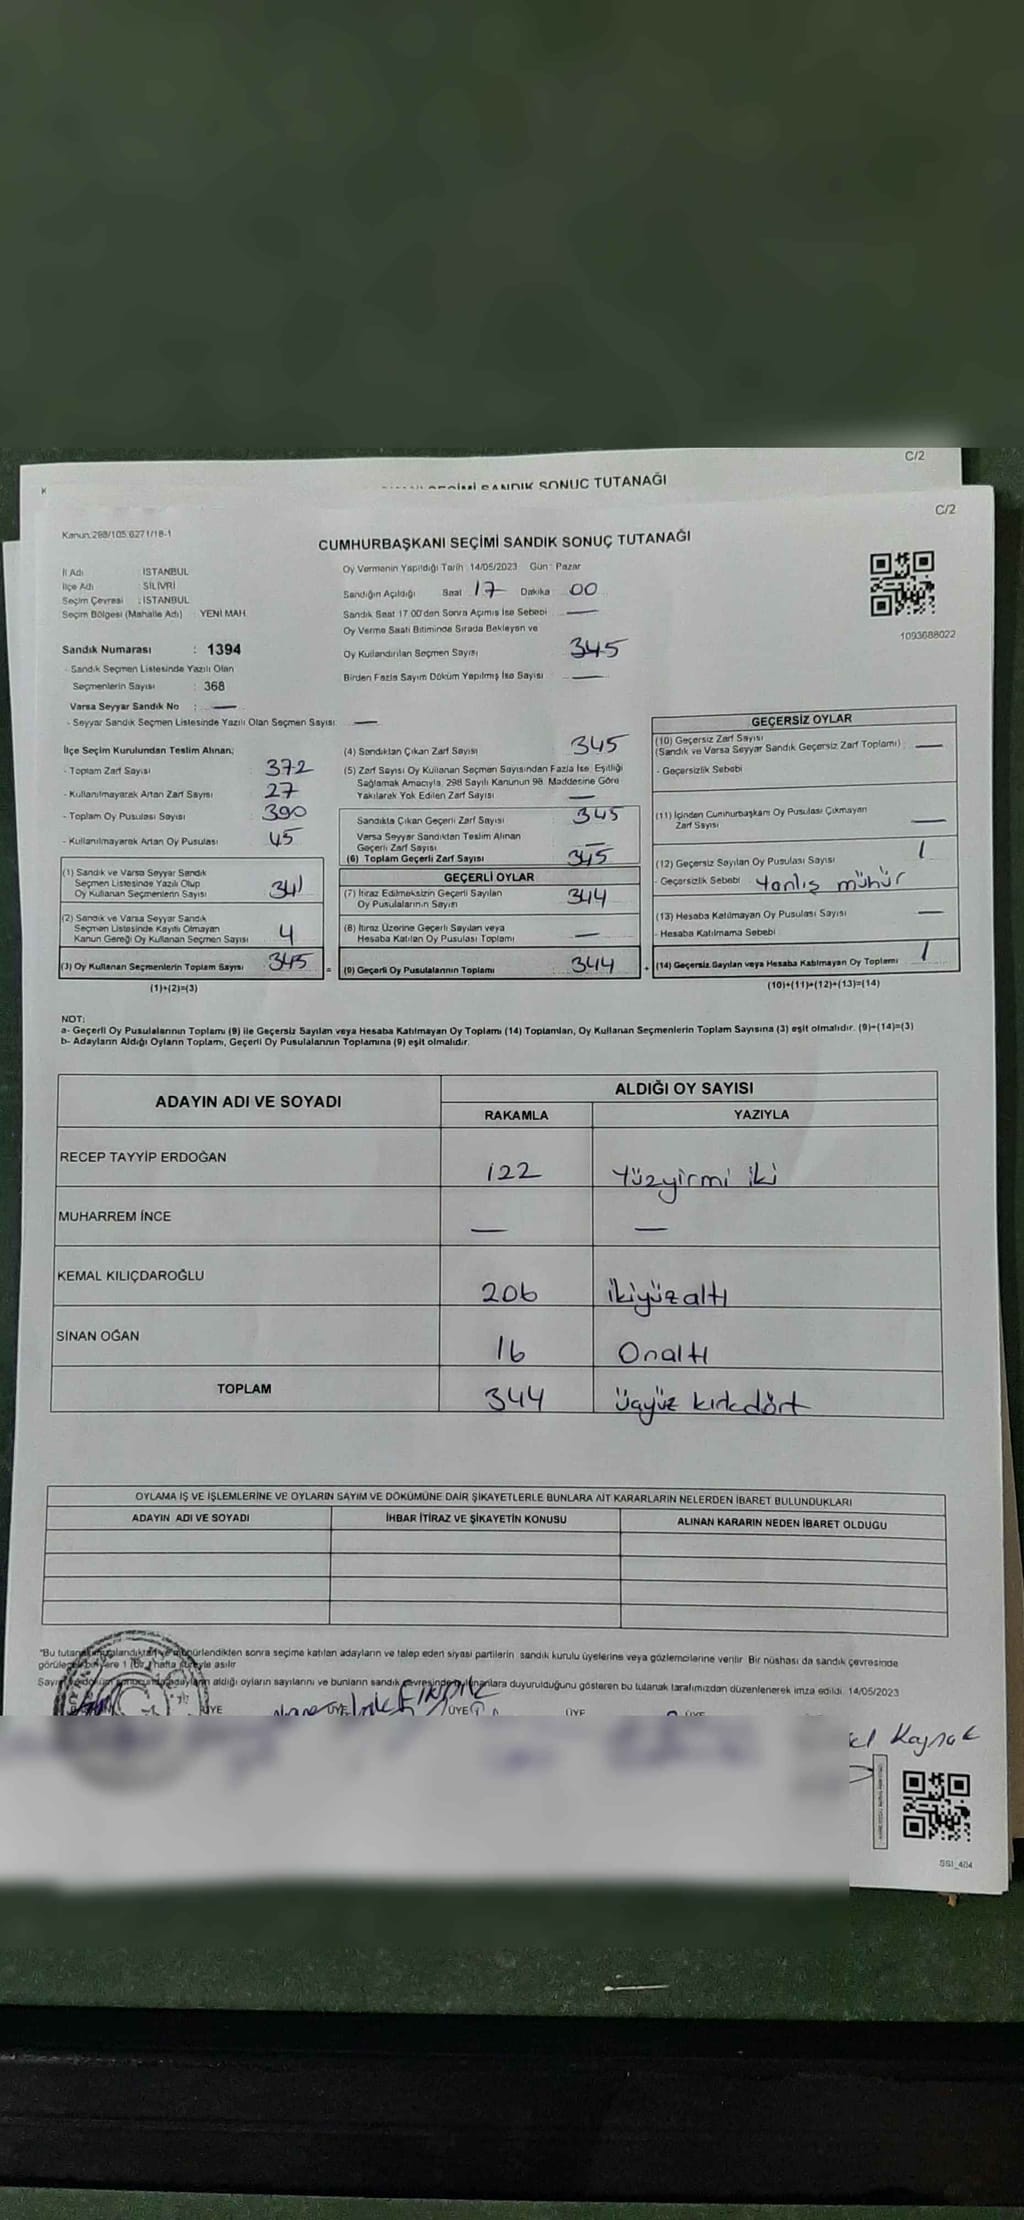 C/2
SANDIK SONUÇ TUTANAĞI
C/2
Kanun:298/105.6271/18-1
CUMHURBAŞKANI SEÇİMİ SANDIK SONUÇ TUTANAĞI
İl Adı : İSTANBUL
İlçe Adı : SİLİVRİ
Seçim Çevresi : İSTANBUL
Seçim Bölgesi (Mahalle Adı) : YENİ MAH.
Oy Vermenin Yapıldığı Tarih :14/05/2023 Gün : Pazar
Sandığın Açıldığı Saat 17 Dakika 00
Sandık Saat 17.00'den Sonra Açılmış İse Sebebi —
Oy Verme Saati Bitiminde Sırada Bekleyen ve
Oy Kullandırılan Seçmen Sayısı 345
Birden Fazla Sayım Döküm Yapılmış İse Sayısı —
1093688022
Sandık Numarası : 1394
- Sandık Seçmen Listesinde Yazılı Olan
Seçmenlerin Sayısı : 368
Varsa Seyyar Sandık No : —
- Seyyar Sandık Seçmen Listesinde Yazılı Olan Seçmen Sayısı: —
İlçe Seçim Kurulundan Teslim Alınan;
- Toplam Zarf Sayısı : 372
- Kullanılmayarak Artan Zarf Sayısı : 27
- Toplam Oy Pusulası Sayısı : 390
- Kullanılmayarak Artan Oy Pusulası : 45
(1) Sandık ve Varsa Seyyar Sandık
Seçmen Listesinde Yazılı Olup
Oy Kullanan Seçmenlerin Sayısı 341
(2) Sandık ve Varsa Seyyar Sandık
Seçmen Listesinde Kayıtlı Olmayan
Kanun Gereği Oy Kullanan Seçmen Sayısı 4
(3) Oy Kullanan Seçmenlerin Toplam Sayısı 345 =
(1)+(2)=(3)
(4) Sandıktan Çıkan Zarf Sayısı 345
(5) Zarf Sayısı Oy Kullanan Seçmen Sayısından Fazla İse, Eşitliği
Sağlamak Amacıyla, 298 Sayılı Kanunun 98. Maddesine Göre
Yakılarak Yok Edilen Zarf Sayısı —
Sandıkta Çıkan Geçerli Zarf Sayısı 345
Varsa Seyyar Sandıktan Teslim Alınan
Geçerli Zarf Sayısı —
(6) Toplam Geçerli Zarf Sayısı 345
GEÇERLİ OYLAR
(7) İtiraz Edilmeksizin Geçerli Sayılan
Oy Pusulalarının Sayısı 344
(8) İtiraz Üzerine Geçerli Sayılan veya
Hesaba Katılan Oy Pusulası Toplamı —
(9) Geçerli Oy Pusulalarının Toplamı 344 +
GEÇERSİZ OYLAR
(10) Geçersiz Zarf Sayısı
(Sandık ve Varsa Seyyar Sandık Geçersiz Zarf Toplamı) —
- Geçersizlik Sebebi
(11) İçinden Cumhurbaşkanı Oy Pusulası Çıkmayan
Zarf Sayısı —
(12) Geçersiz Sayılan Oy Pusulası Sayısı 1
- Geçersizlik Sebebi Yanlış mühür
(13) Hesaba Katılmayan Oy Pusulası Sayısı —
- Hesaba Katılmama Sebebi
(14) Geçersiz Sayılan veya Hesaba Katılmayan Oy Toplamı 1
(10)+(11)+(12)+(13)=(14)
NOT:
a- Geçerli Oy Pusulalarının Toplamı (9) ile Geçersiz Sayılan veya Hesaba Katılmayan Oy Toplamı (14) Toplamları, Oy Kullanan Seçmenlerin Toplam Sayısına (3) eşit olmalıdır. (9)+(14)=(3)
b- Adayların Aldığı Oyların Toplamı, Geçerli Oy Pusulalarının Toplamına (9) eşit olmalıdır.
ADAYIN ADI VE SOYADI
ALDIĞI OY SAYISI
RAKAMLA YAZIYLA
RECEP TAYYİP ERDOĞAN 122 Yüzyirmi iki
MUHARREM İNCE — —
KEMAL KILIÇDAROĞLU 206 ikiyüzaltı
SİNAN OĞAN 16 Onaltı
TOPLAM 344 üçyüz kırkdört
OYLAMA İŞ VE İŞLEMLERİNE VE OYLARIN SAYIM VE DÖKÜMÜNE DAİR ŞİKAYETLERLE BUNLARA AİT KARARLARIN NELERDEN İBARET BULUNDUKLARI
ADAYIN ADI VE SOYADI İHBAR İTİRAZ VE ŞİKAYETİN KONUSU ALINAN KARARIN NEDEN İBARET OLDUĞU
sonra seçime katılan adayların ve talep eden siyasi partilerin sandık kurulu üyelerine veya gözlemcilerine verilir. Bir nüshası da sandık çevresinde
1 hafta süreyle asılır
aldığı oyların sayılarını ve bunların sandık duyurulduğunu gösteren bu tutanak tarafımızdan düzenlenerek imza edildi. 14/05/2023
ÜYE ÜYE ÜYE ÜYE ÜYE
Kaynak
SSI_404